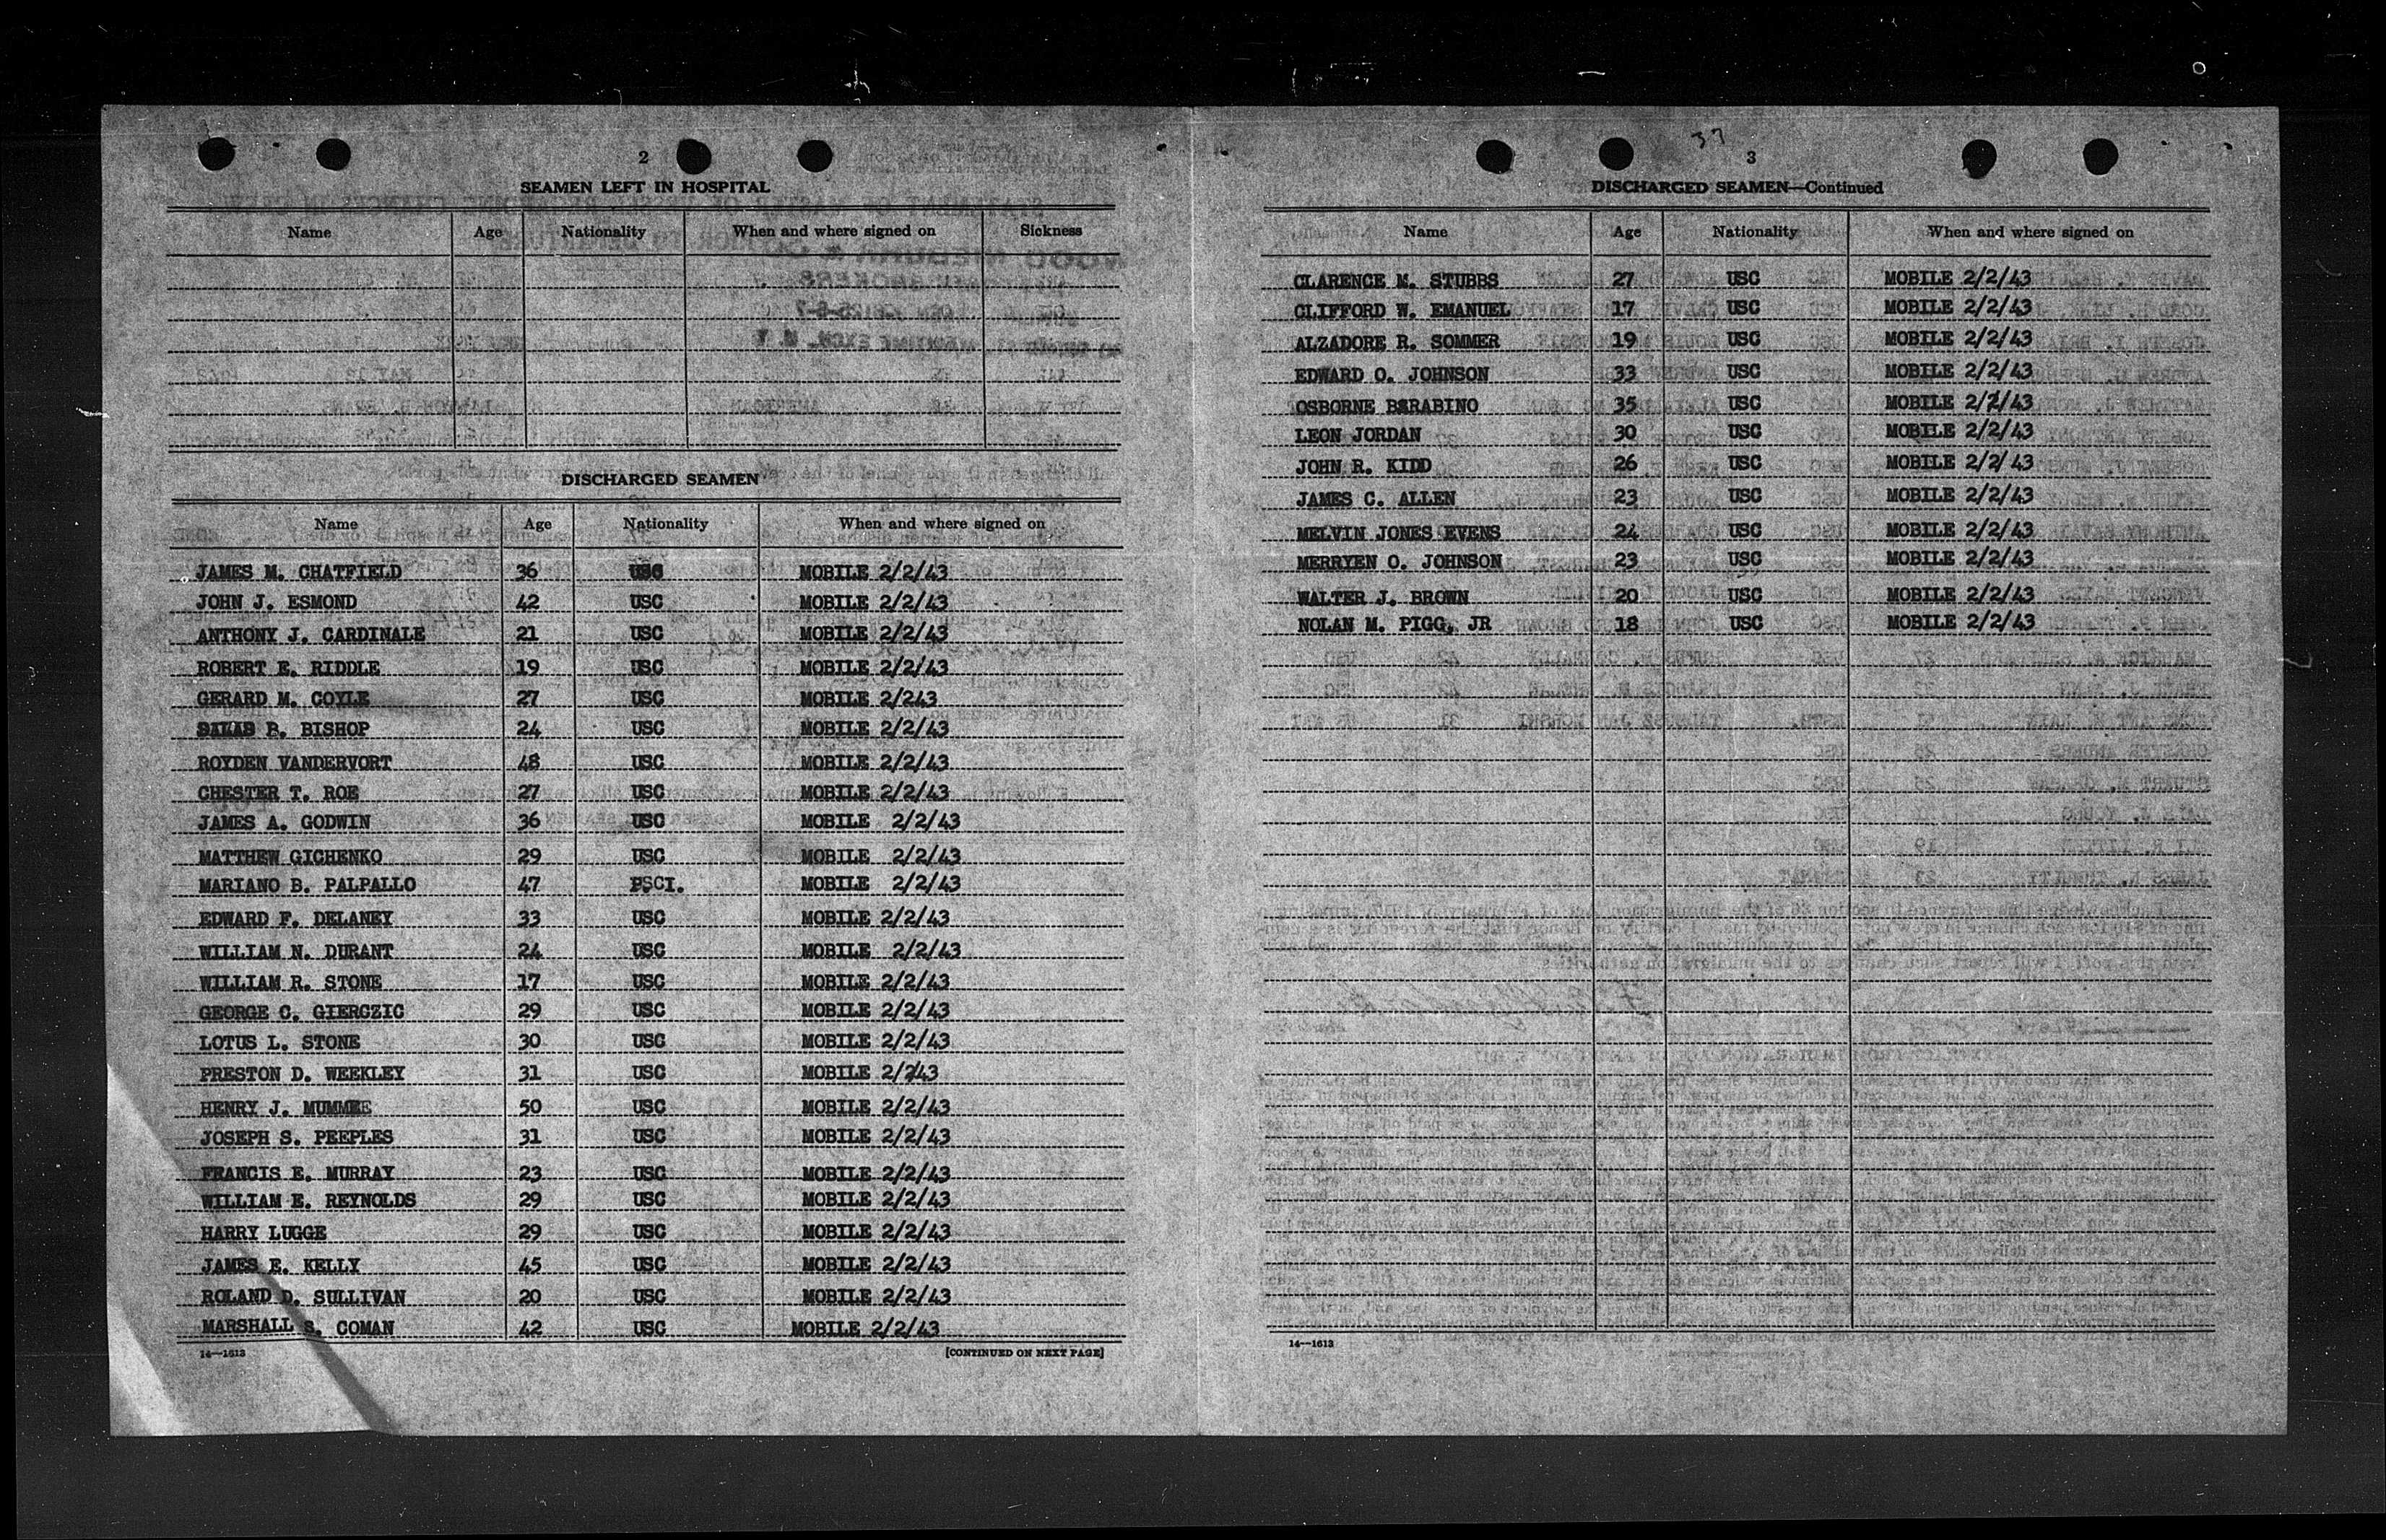 2
SEAMEN LEFT IN HOSPITAL
Name Age Nationality When and where signed on Sickness
DISCHARGED SEAMEN
Name Age Nationality When and where signed on
JAMES M. CHATFIELD 36 USC MOBILE 2/2/43
JOHN J. ESMOND 42 USC MOBILE 2/2/43
ANTHONY J. CARDINALE 21 USC MOBILE 2/2/43
ROBERT E. RIDDLE 19 USC MOBILE 2/2/43
GERARD M. COYLE 27 USC MOBILE 2/243
B. BISHOP 24 USC MOBILE 2/2/43
ROYDEN VANDERVORT 48 USC MOBILE 2/2/43
CHESTER T. ROE 27 USC MOBILE 2/2/43
JAMES A. GODWIN 36 USC MOBILE 2/2/43
MATTHEW GICHENKO 29 USC MOBILE 2/2/43
MARIANO B. PALPALLO 47 P.SCI. MOBILE 2/2/43
EDWARD F. DELANEY 33 USC MOBILE 2/2/43
WILLIAM N. DURANT 24 USC MOBILE 2/2/43
WILLIAM R. STONE 17 USC MOBILE 2/2/43
GEORGE C. GIERCZIC 29 USC MOBILE 2/2/43
LOTUS L. STONE 30 USC MOBILE 2/2/43
PRESTON D. WEEKLEY 31 USC MOBILE 2/2/43
HENRY J. MUMMEE 50 USC MOBILE 2/2/43
JOSEPH S. PEEPLES 31 USC MOBILE 2/2/43
FRANCIS E. MURRAY 23 USC MOBILE 2/2/43
WILLIAM E. REYNOLDS 29 USC MOBILE 2/2/43
HARRY LUGGE 29 USC MOBILE 2/2/43
JAMES E. KELLY 45 USC MOBILE 2/2/43
ROLAND D. SULLIVAN 20 USC MOBILE 2/2/43
MARSHALL S. COMAN 42 USC MOBILE 2/2/43
14—1613 [CONTINUED ON NEXT PAGE]
37
3
DISCHARGED SEAMEN—Continued
Name Age Nationality When and where signed on
CLARENCE M. STUBBS 27 USC MOBILE 2/2/43
CLIFFORD W. EMANUEL 17 USC MOBILE 2/2/43
ALZADORE R. SOMMER 19 USC MOBILE 2/2/43
EDWARD O. JOHNSON 33 USC MOBILE 2/2/43
OSBORNE BARABINO 35 USC MOBILE 2/2/43
LEON JORDAN 30 USC MOBILE 2/2/43
JOHN R. KIDD 26 USC MOBILE 2/2/43
JAMES C. ALLEN 23 USC MOBILE 2/2/43
MELVIN JONES EVENS 24 USC MOBILE 2/2/43
MERRYEN O. JOHNSON 23 USC MOBILE 2/2/43
WALTER J. BROWN 20 USC MOBILE 2/2/43
NOLAN M. PIGG, JR 18 USC MOBILE 2/2/43
14—1613